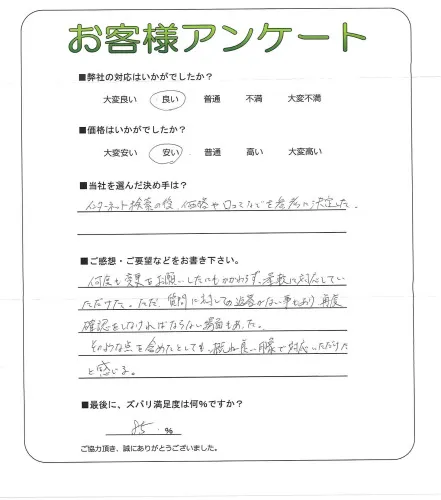 お客様アンケート
■弊社の対応はいかがでしたか？
大変良い 良い 普通 不満 大変不満
■価格はいかがでしたか？
大変安い 安い 普通 高い 大変高い
■当社を選んだ決め手は？
インターネット検索の後、価格や口コミなどを参考に決定した。
■ご感想・ご要望などをお書き下さい。
何度も変更をお願いしたにもかかわらず、柔軟に対応してい
ただけた。ただ、質問に対しての返答がない事もあり、再度
確認をしなければならない場面もあった。
そのような点を含めたとしても、概ね良い印象で対応いただけた
と感じる。
■最後に、ズバリ満足度は何%ですか？
85 %
ご協力頂き、誠にありがとうございました。